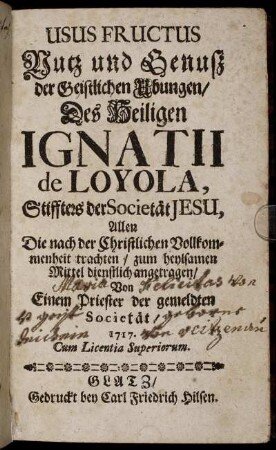 USUS FRUCTUS
Nutz und Genuß
der Geistlichen Übungen/
Des Heiligen
IGNATII
de LOYOLA,
Stiffters der Societät JESU,
Allen
Die nach der Christlichen Vollkom-
menheit trachten/ zum heylsamen
Mittel dienstlich angetragen/
Von
Maria Felicitas von
Einem Priester der gemeldten
Societät/
geborne
1717.
von
Cum Licentia Superiorum.
GLATZ/
Gedruckt bey Carl Friedrich Hilsen.